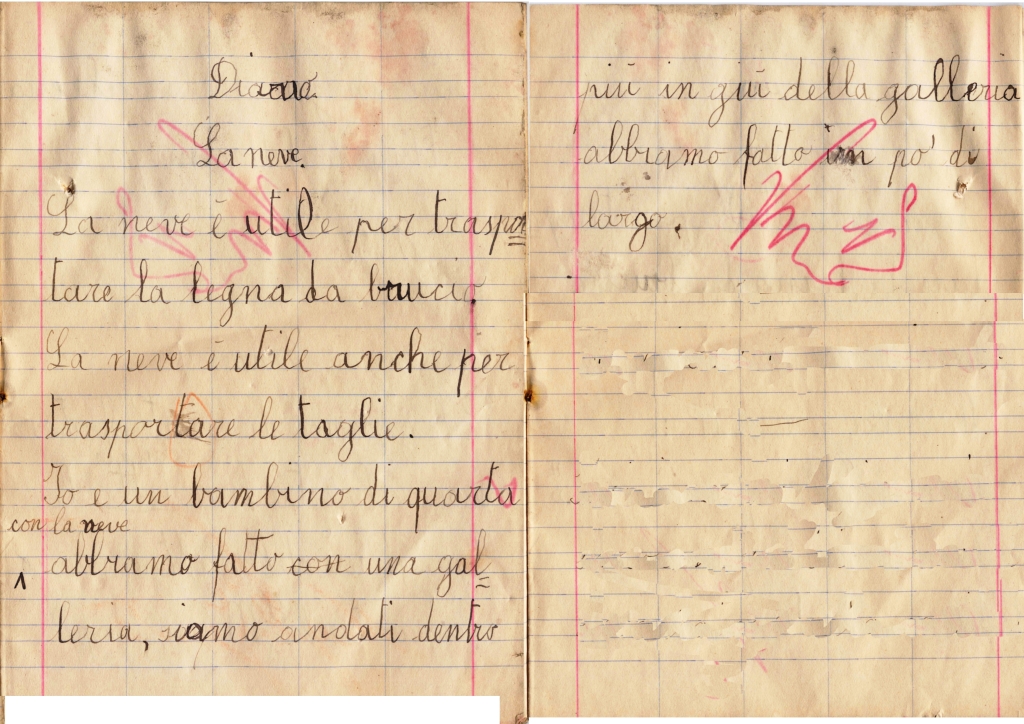 Diario
La neve.
La neve è utile per traspor
tare la legna da brucio.
La neve è utile anche per
trasportare le taglie.
Io e un bambino di quarta
con la neve
abbiamo fatto con una gal
leria, siamo andati dentro
più in giù della galleria
abbiamo fatto un po' di
largo.